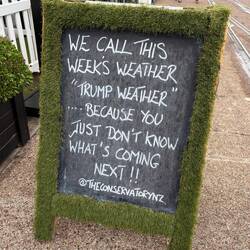 WE CALL THIS
WEEK'S WEATHER
"TRUMP WEATHER"
.... BECAUSE YOU
JUST DON'T KNOW
WHAT'S COMING
NEXT !!
@THECONSERVATORYNZ